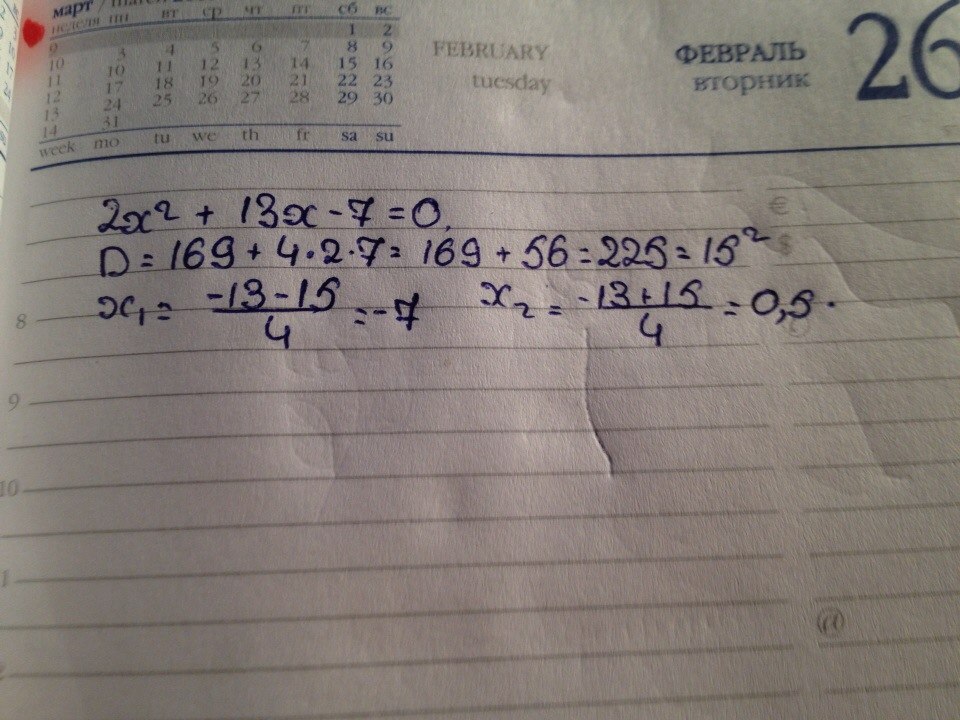 март / march
неделя пн вт ср чт пт сб вс
1 2
9 3 4 5 6 7 8 9
10 10 11 12 13 14 15 16
11 17 18 19 20 21 22 23
12 24 25 26 27 28 29 30
13 31
14
week mo tu we th fr sa su
FEBRUARY
tuesday
ФЕВРАЛЬ
вторник
26
2x² + 13x - 7 = 0.
D = 169 + 4·2·7 = 169 + 56 = 225 = 15²
x₁ = (-13-15)/4 = -7 x₂ = (-13+15)/4 = 0,5.
€
$
8
9
10
@